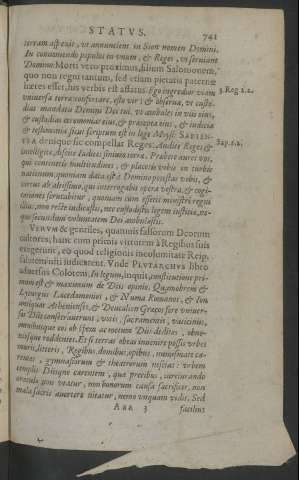 STATVS. 741
terram aspexit, vt annuntient in Sion nomen Domini.
In conueniendo populos in vnum, & Reges, vt seruiant
Domino Morti vero proximus, filium Salomonem,
quo non regni tantum, sed etiam pietatis paternæ
hæres esset, his verbis est affatus. Ego ingredior viam
vniuersæ terræ: confortare, esto vir: & obserua, vt custo-
dias mandata Domini Dei tui, vt ambules in viis eius,
& custodias ceremonias eius, & præcepta eius, & iudicia
& testimonia sicut scriptum est in lege Moysi. SAPIEN-
TIA denique sic compellat Reges: Audite Reges &
intelligite, discite Iudices finium terræ. Præbete aures vos,
qui continetis multitudines, & placetis vobis in turbis
nationum, quoniam data est à Domino potestas vobis, &
virtus ab altissimo, qui interrogabit opera vestra, & cogi-
tationes scrutabitur, quoniam cum essetis ministri regni
illius, non recte iudicastis, nec custodistis legem iustitiæ, ne-
que secundum voluntatem Dei ambulastis.
VERVM & gentiles, quamuis falsorum Deorum
cultores, hanc cum primis virtutem à Regibus suis
exegerunt, eo quod religionis incolumitate Reip.
salutem niti iudicarent. Vnde PLVTARCHVS libro
aduersus Colotem, In legum, inquit, constitutione pri-
mum est & maximum de Diis opinio. Quamobrem &
Lycurgus Lacedæmonios, & Numa Romanos, & Ion
antiquus Athenienses, & Deucalion Græcos fere vniuer-
sos Diis consecrauerunt, votis, sacramentis, vaticiniis,
ominibusque eos ob spem ac metum Diis deditos, obno-
xiosque reddentes. Et si terras obeas inuenire possis vrbes
muris, litteris, Regibus, domibus, opibus, numismate ca-
rentes, gymnasiorum & theatrorum nescias: vrbem
templis Diisque carentem, quæ precibus, iureiurando
oraculo non vtatur, non bonorum causa sacrificet, non
mala sacris auertere nitatur, nemo vnquam vidit. Sed
Abb 3 facilius
3. Reg 2.2.
Sap. 6.2.